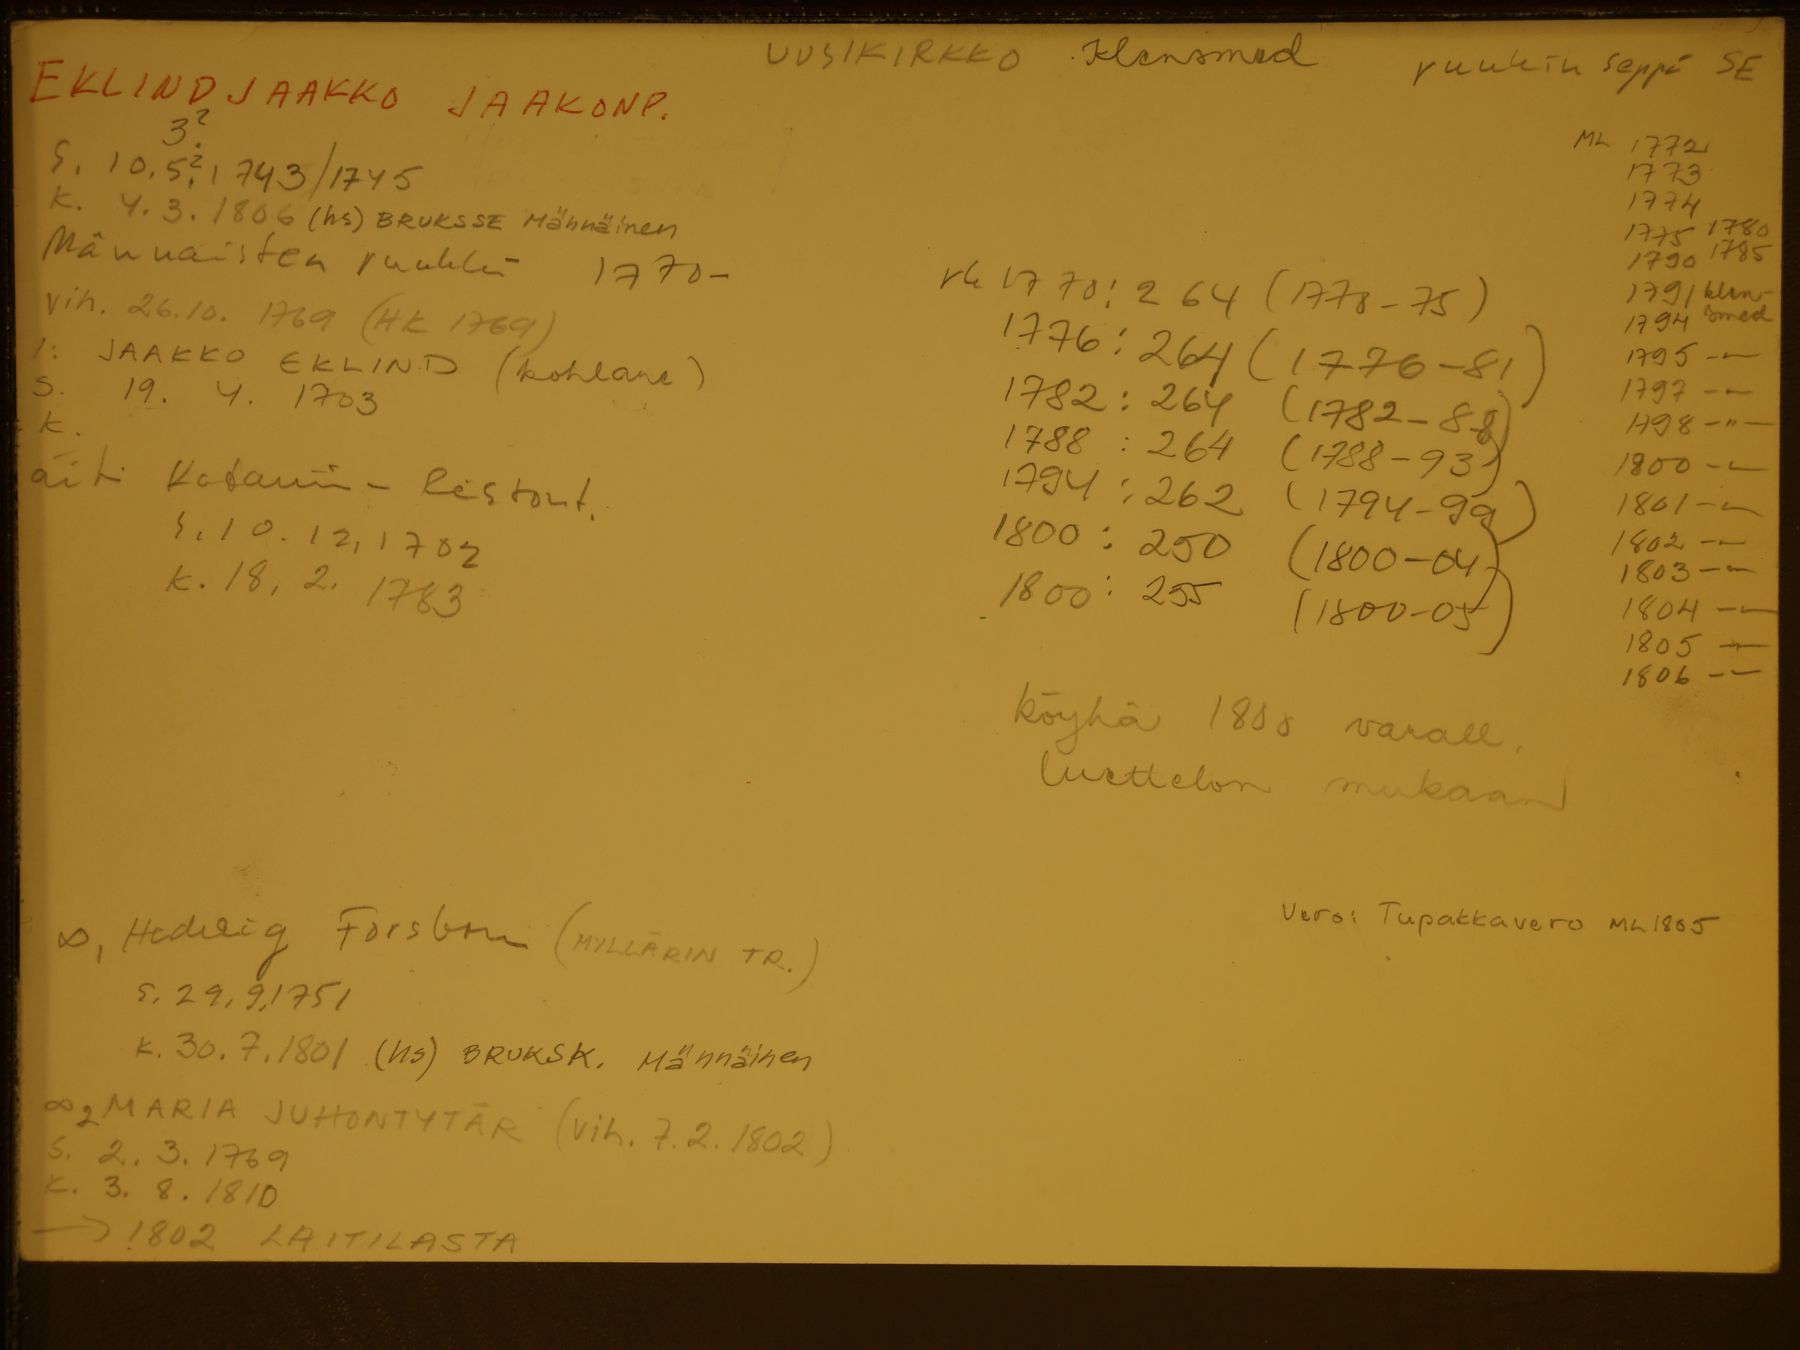 UUSIKIRKKO Klensmed ruukin seppä SE
EKLIND JAAKKO JAAKONP.
3?
S. 10.5?.1743/1745
K. 4.3.1806 (hs) BRUKSSE Männäinen
Männäisten ruukki 1770-
vih. 26.10. 1769 (HK 1769)
I: JAAKKO EKLIND (kohlare)
S. 19. 4. 1703
K.
äiti Katarii- Ristont.
S. 10. 12. 1702
K. 18. 2. 1783
rk 1770: 264 (1770-75)
1776: 264 (1776-81)
1782: 264 (1782-88)
1788: 264 (1788-93)
1794: 262 (1794-99)
1800: 250 (1800-04)
1800: 255 (1800-05)
köyhä 1800 varall.
luettelon mukaan
ML 1772
1773
1774
1775 1780
1790 1785
1791 klen-
1794 smed
1795 -"-
1797 -"-
1798 -"-
1800 -"-
1801 -"-
1802 -"-
1803 -"-
1804 -"-
1805 -"-
1806 -"-
Vero: Tupakkavero ML 1805
∞1 Hedvig Forsbom (MYLLÄRIN TR.)
S. 29.9.1751
K. 30.7.1801 (hs) BRUKSK. Männäinen
∞2 MARIA JUHONTYTÄR (vih. 7.2.1802)
S. 2. 3. 1769
K. 3. 8. 1810
→ 1802 LAITILASTA